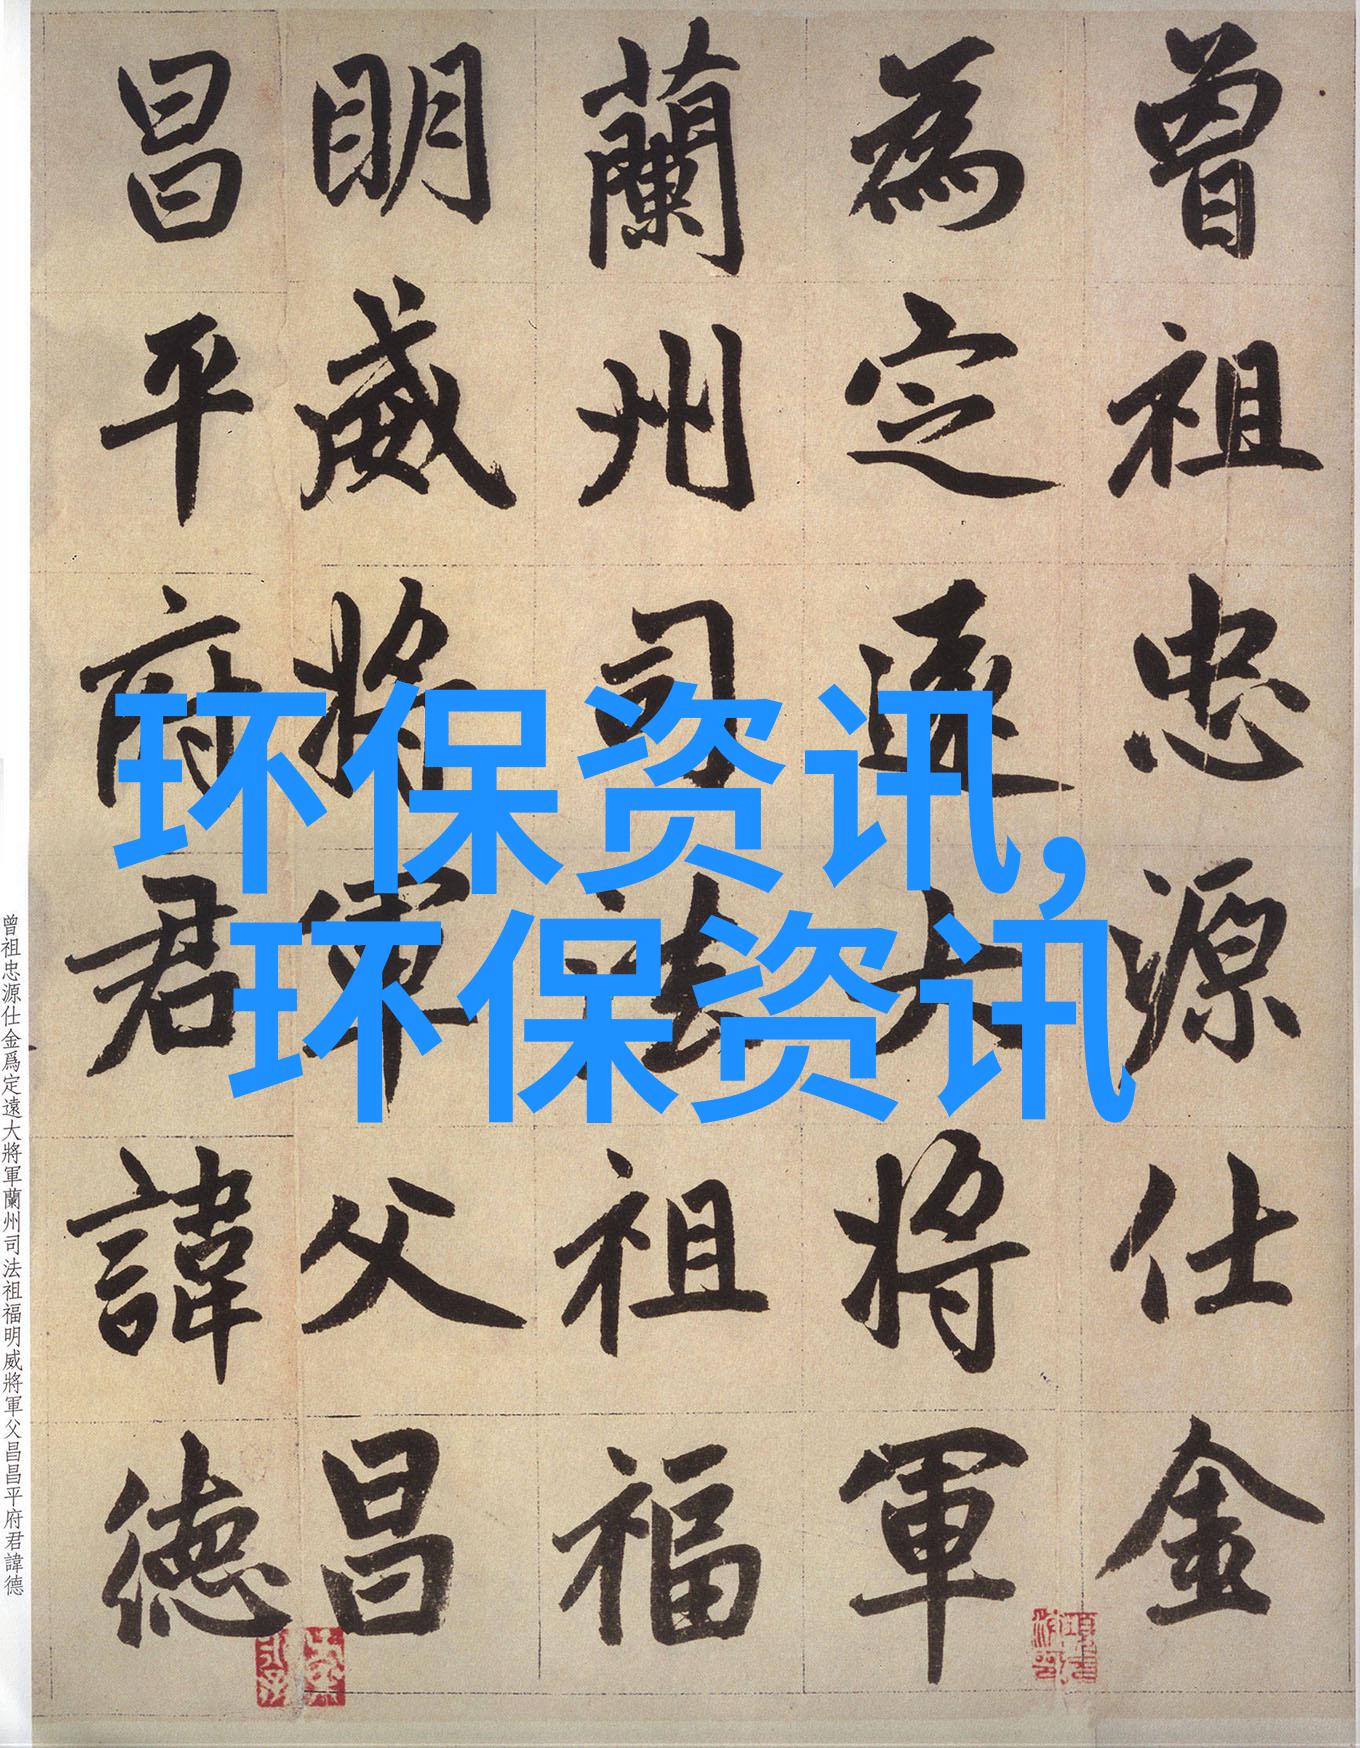 曾祖忠源仕金
為定遠大將軍
蘭州司法祖福
明威將軍父昌
昌平府君諱德
环保资讯,
环保资讯
曾祖忠源仕金爲定遠大將軍蘭州司法祖福明威將軍父昌昌平府君諱德